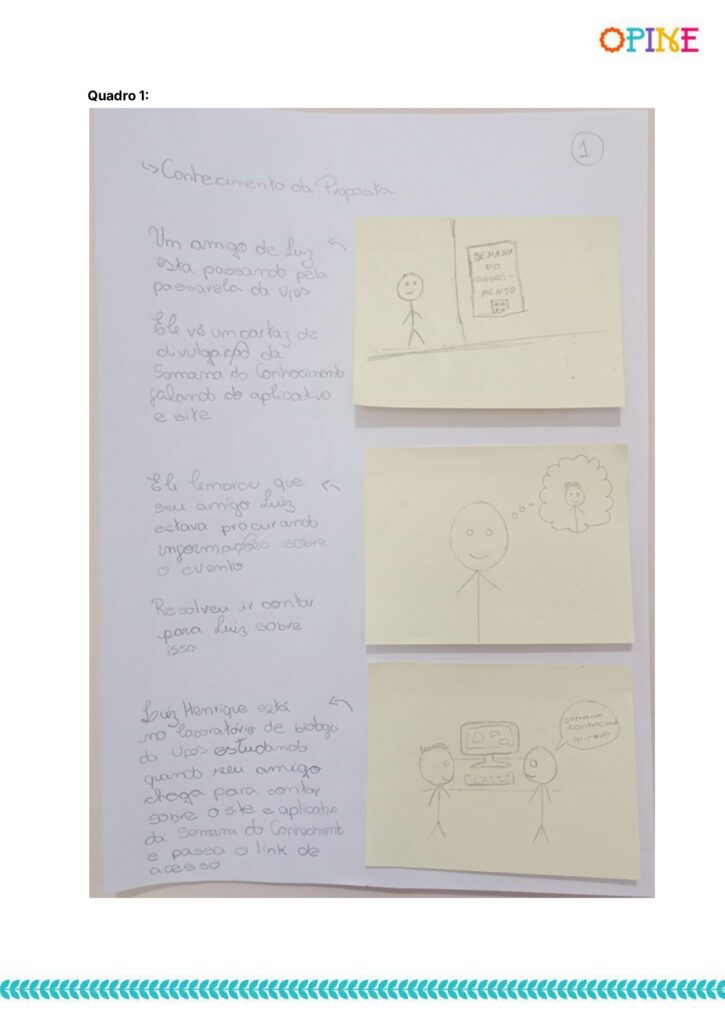 OPINE
Quadro 1:
1
↳ Conhecimento da Proposta
Um amigo de Luiz
esta passando pela
passarela da Ufes
Ele vê um cartaz de
divulgação da
Semana do Conhecimento
falando do aplicativo
e site
SEMANA
DO
CONHECI-
MENTO
Ele lembrou que
seu amigo Luiz
estava procurando
informações sobre
o evento
Resolveu ir contar
para Luiz sobre
isso
Luiz Henrique está
no laboratório de biologo
da Ufes estudando
quando seu amigo
chega para contar
sobre o site e aplicativo
da Semana do Conhecimento
e passa o link de
acesso
semana